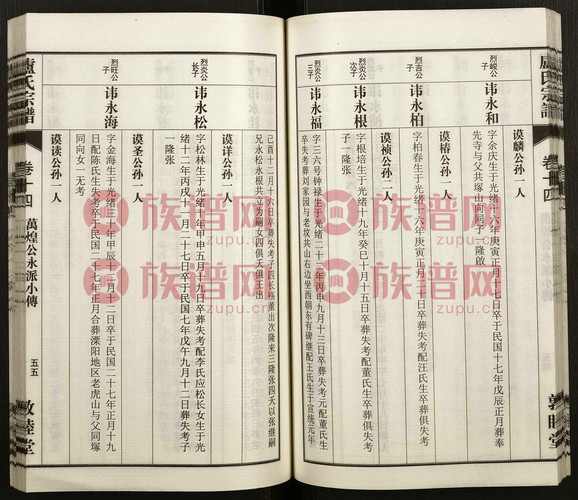 盧氏宗譜
卷十四
敦睦堂
谟麟公孙一人
烈峻公
子
讳永和
字余庆生于光绪十六年庚寅正月十六日卒于民国十七年戊辰正月葬奉
先寺与父共塚山向同子一隆啟
谟椿公孙一人
烈吉公
子
讳永柏
字柏春生于光绪十六年庚寅正月二十日卒葬失考配汪氏生卒葬俱失考
谟祯公孙二人
烈炎公
次子
讳永根
字根培生于光绪十九年癸巳十月十五日卒葬失考配董氏生卒葬俱失考
子一隆张
烈炎公
三子
讳永福
字三六号钟禄生于光绪二十二年丙申九月十三日卒葬失考元配董氏生
卒失考葬刘家园与老坟共山右边坐西朝东有碑继配王氏生于宣统元年
己酉十二月十六日卒葬失考子四长务董出次隆来三隆张四夭以张继嗣
兄永松永根共立为嗣女四俱夭俱王出
谟详公孙一人
烈炎公
长子
讳永松
字松林生于光绪十年甲申五月十九日卒葬失考配李氏应松长女生于光
绪十二年丙戌十一月二十七日卒于民国七年戊午九月十二日葬失考子
一隆张
谟圣公孙一人
烈旺公
子
讳永海
字金海生于光绪十年甲辰十二月十二日卒于民国二十七年正月十九
日配陈氏生失考卒于民国二十七年正月合葬溧阳地区老虎山与父同塚
同向女一无考
谟读公孙一人
盧氏宗譜
卷十四
萬煌公永派小傳
五五
敦睦堂
族谱网
zupu.cn
族谱网
zupu.cn
族谱网
zupu.cn
族谱网
zupu.cn